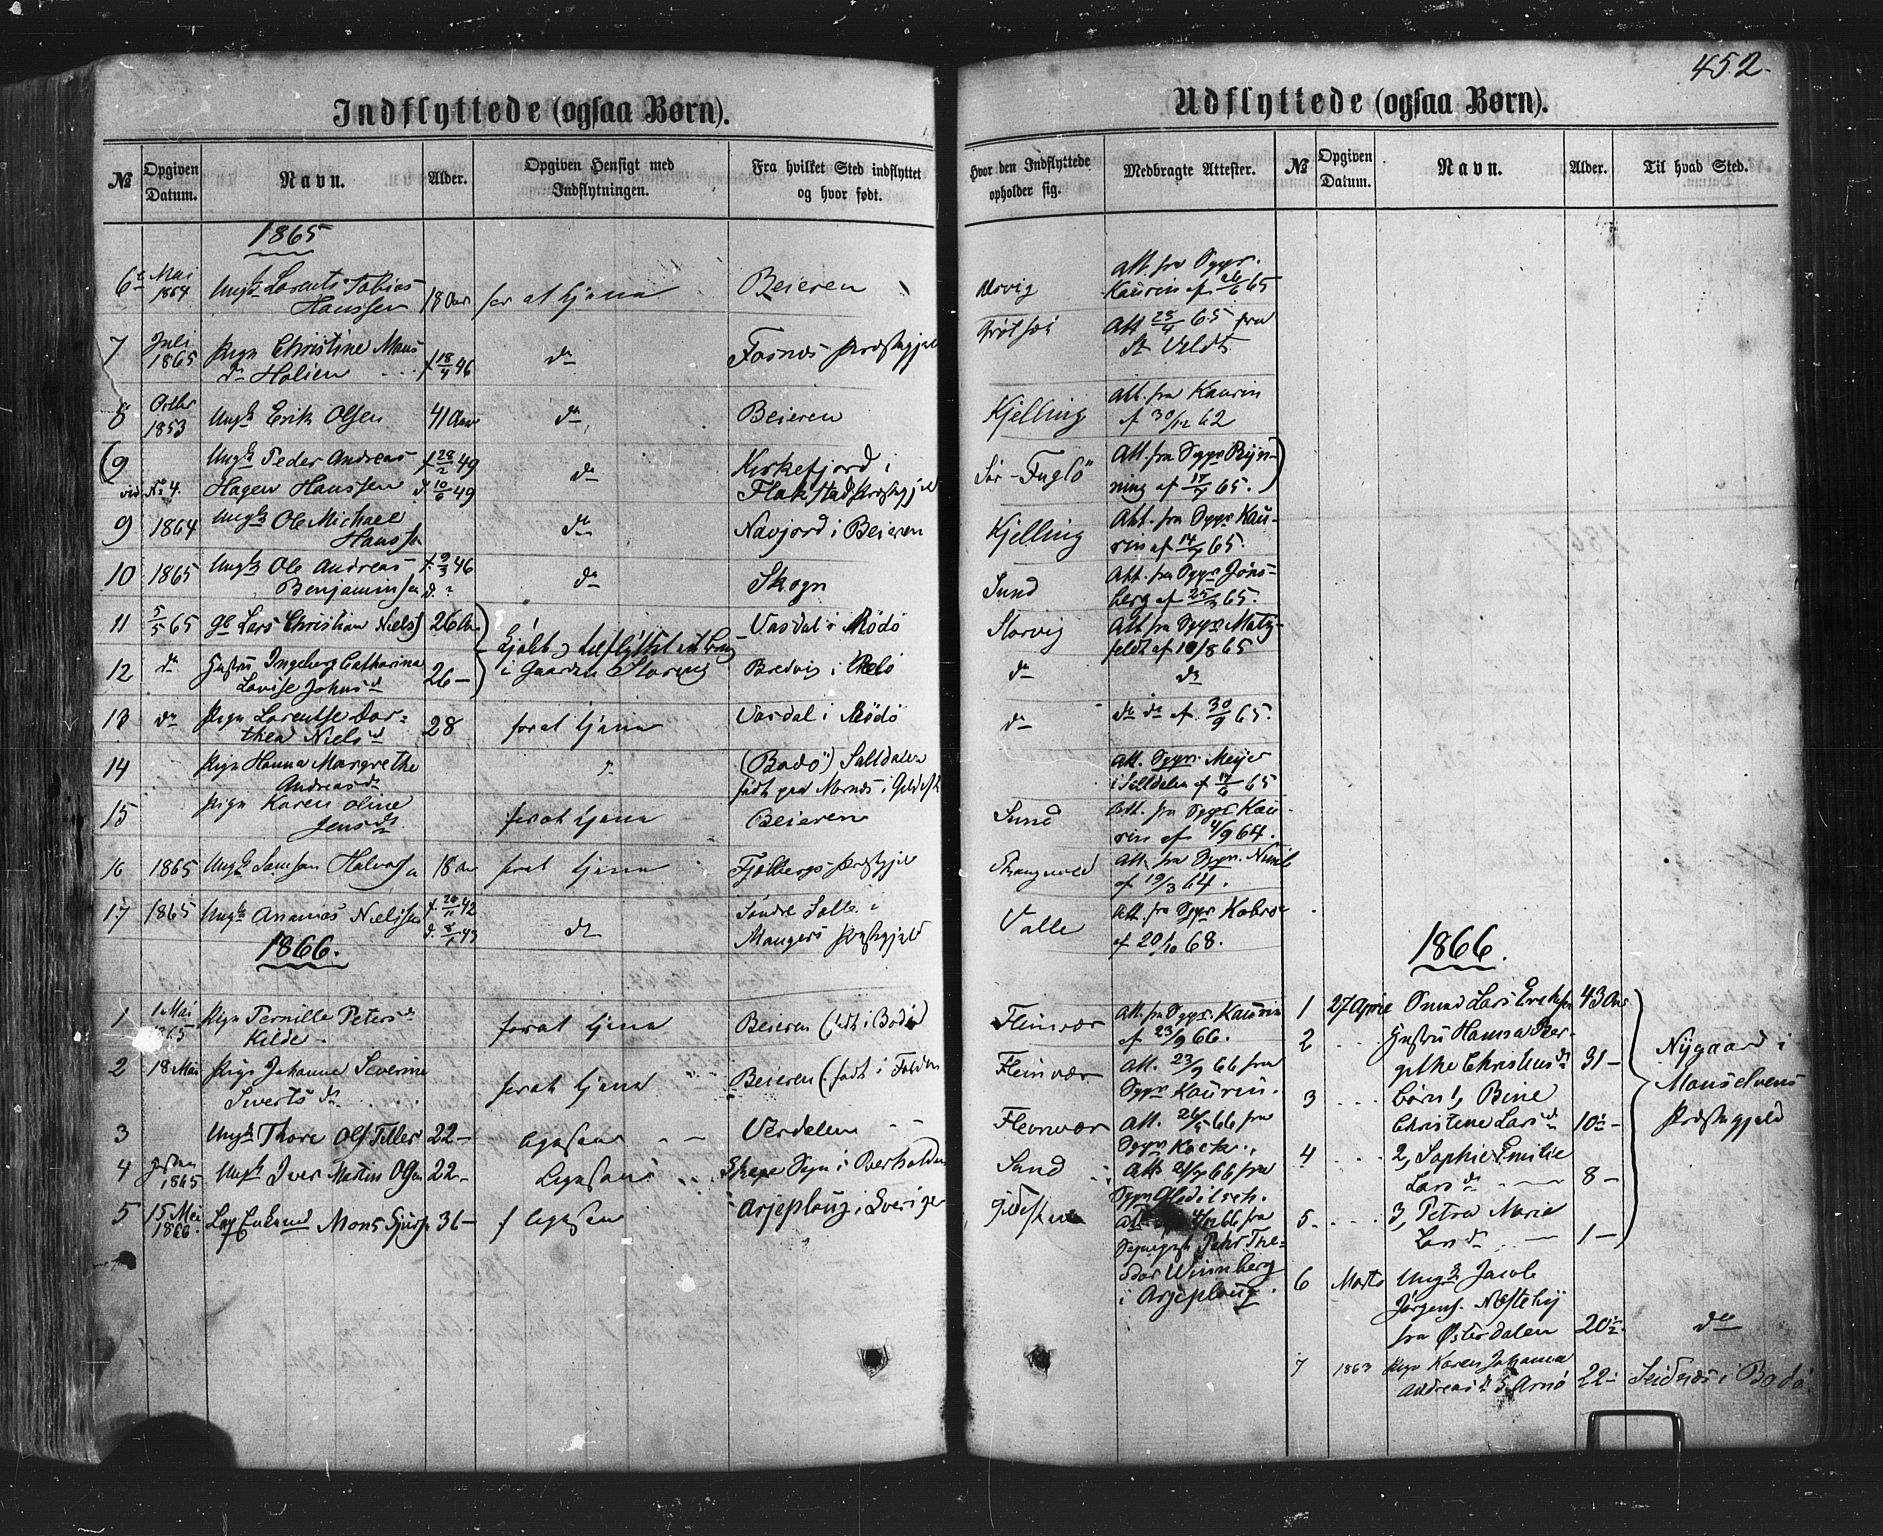 452.
Indflyttede (ogsaa Børn).
No
Opgiven Datum.
Navn.
Alder.
Opgiven Hensigt med Indflytningen.
Fra hvilket Sted indflyttet og hvor født.
Hvor den Indflyttede opholder sig.
Medbragte Attester.
1865
6 Mai 1864 Ungk Lorents Tobias Hanssen 18 Aar for at tjene Beieren Att. fra Sgpr. Kaurin af 26/6 65
7 Juli 1865 Pign Christine Mons d. Holien f. 18/4 46 do Fosnæs Præstegjeld Att 28/4 65 fra
8 Octbr 1853 Ungk Erik Olsen 41 Aar do Beieren Kjelling Att. fra Kaurin af 30/12 62
(9 vid. No 4. Ungk Peder Andreas Hagen Hanssen f. 28/2 49 d. 10/6 49 do Kirkefjord i Flakstad Præstegjeld Sør-Fuglø Att. fra Sgpr Rynning af 17/7 65.)
9 1864 Ungk Ole Michael Hanssen do Navjord i Beieren Kjelling Att. fra Sgpr Kaurin af 14/7 65.
10 1865 Ungk Ole Andreas Benjaminsen f. 9/3 46 d. " do Skogn Sund Att. fra Sgpr Jønsberg af 25/3 65.
11 5/5 65 Lars Christian Niels 26 Aar tilflyttet i Gaarden Storvig Vasdal i Rødø Storvig Att fra Sgpr Matzfeldt af 10/8 65
12 do Hustru Ingeborg Catharina Lovise Johnsd 26 - Bredvig i Rødø do do
13 do Pign Lorentse Dorthea Nielsd 28 for at tjene Vasdal i Rødø do do do af 30/9 65.
14 Pign Hanna Margrethe Andreasd (Bodø) Saltdalen født paa Mornæs i Gildesk Att. Sgpr. Meyer i Saltdalen af 17/6 65
15 Pign Karen Oline Jensd for at tjene Beieren Sund Att. fra Sgpr Kaurin af 4/9 64.
16 1865 Ungk Samson Halvors 18 Aar for at tjene Præstgjeld Att. fra Sgpr. af 19/3 64.
17 1865 Ungk Ananias Nielssen f. 20/11 42 d. 8/1 43 do Søndre i Mangers Præstegjeld Valle Att. fra Sgpr af 20/10 68.
1866.
1 1 Mai 1865 Pign Pernille Petersd Kilde for at tjene Beieren (født i Bodø) Fleinvær Att. fra Sgpr. Kaurin af 23/9 66.
2 18 Mai Pign Johanne Severine Sivertsd for at tjene Beieren (født i Folden Fleinvær Att. 23/9 66 fra Sgpr Kaurin.
3 Ungk Thore Ols Tiller 22 - Verdalen Fleinvær Att. 26/5 66 fra Sgpr
4 1865 Ungk Iver Martin Olsen 22 - Sogn i Overhalden Sund Att fra Sgpr Gleditsch.
5 15 Mai 1866. Lap Mons Sjurs 36 - Arjeploug i Sverige Gildeskaal 4/12 66 fra Pehr Theodor Winnberg i Arjeploug.
Udflyttede (ogsaa Børn).
No
Opgiven Datum.
Navn.
Alder.
Til hvad Sted.
1866.
1 27 April Lars Ereksen 43 Aar
2 Hustru Hanna Bergithe Christiansd 31 -
3 børn 1, Bine Christine Larsd 10½ -
4 2, Sophie Emilie Larsd 8 -
5 3, Petra Marie Larsd 1 -
Nygaard i Maaselvens Præstegjeld
6 Marts Ungk Jacob Jørgens. Næsteby fra Østerdalen 20½ do
7 1863 Pign Karen Johanna Andreasd Arnø 22 - Seidnæs i Bodø